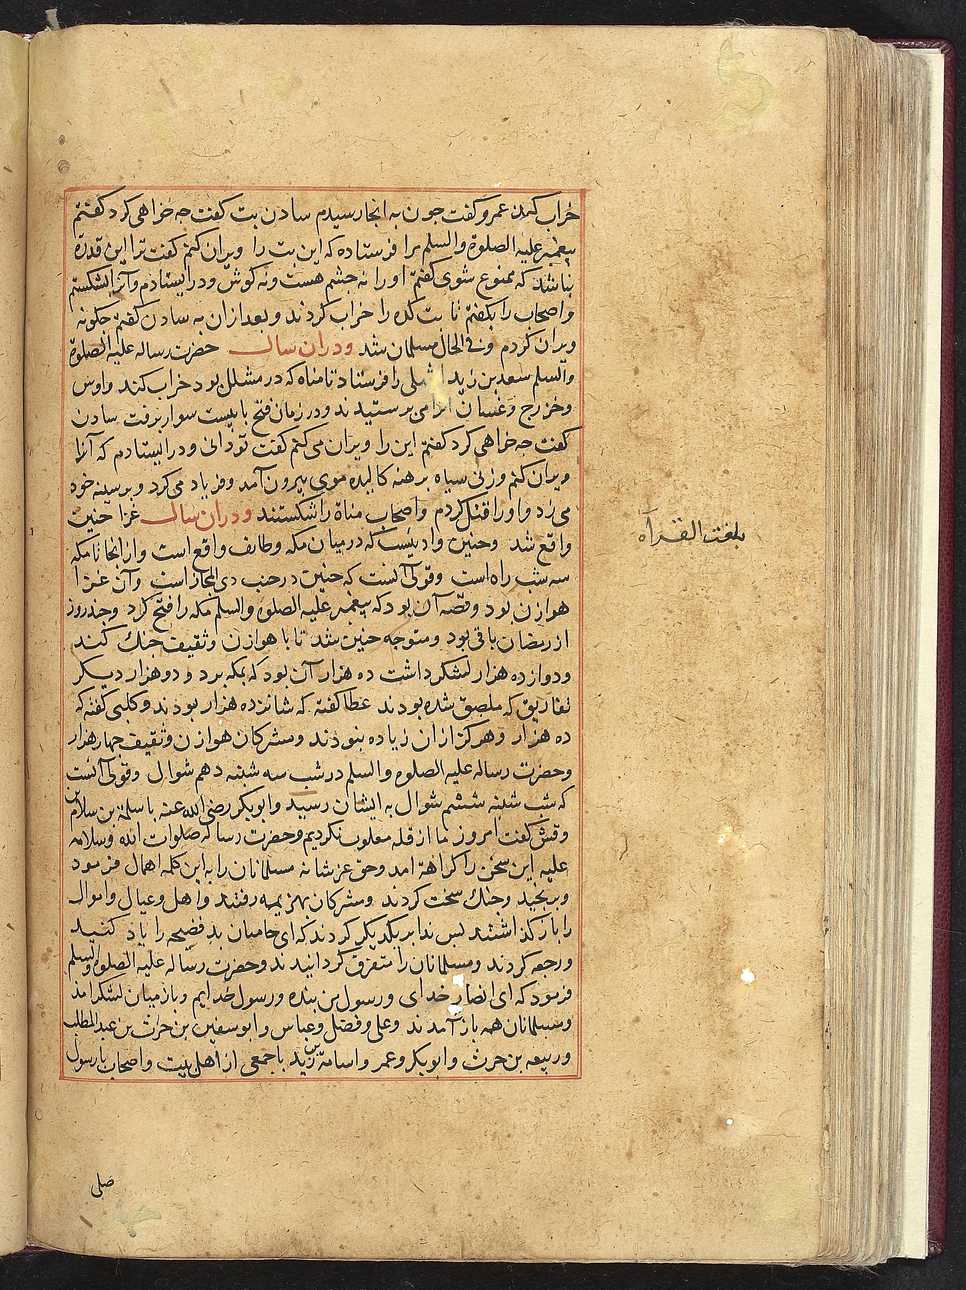 خراب کند عمرو گفت جون به انجا رسیدم سادن بت گفت جه خواهی کرد گفتم
بیغمبر علیه الصلوة والسلم مرا فرستاده که این بت را ویران کنم گفت ترا این قدرة
نباشد که ممنوع شوی گفتم او را نه جشم هست ونه کوش ودر ایستادم وآنرا بشکستم
واصحاب را بکفتم تا بت کده را خراب کردند وبعد ازان به سادن کفتم جکونه
ویران کردم وفی الحال مسلمان شد ودران سال حضرت رساله علیه الصلوة
والسلم سعد بن زید اشهلی را فرستاد تا مناه که در مشلل بود خراب کند واوس
وخزرج وغسان انرا می برستیدند ودر زمان فتح با بیست سوار برفت سادن
کفت جه خواهی کرد کفتم این را ویران می کنم کفت تو دانی ودر ایستادم که آنرا
ویران کنم وزنی سیاه برهنه کالیده موی بیرون آمد وفریاد می کرد وبر سینه خود
می زد واو را قتل کردم واصحاب مناة را شکستند ودران سال غزا حنین
واقع شد وحنین وادیست که درمیان مکه وطایف واقع است واز انجا تا مکه
سه شب راه است وقولی آنست که حنین در جنب ذی المجاز است وآن غزا
هوازن بود وقصه آن بود که بیغمبر علیه الصلوه والسلم مکه را فتح کرد وجند روز
از رمضان باقی بود ومتوجه حنین شد تا با هوازن وثقیف جنك کند
ودوازده هزار لشکر داشت ده هزار آن بود که بمکه برد و دو هزار دیکر
تفاریق که ملصق شده بودند عطا کفته که شانزده هزار بودند وکلبی کفته که
ده هزار وهرکز ازان زیاده بنودند ومشرکان هوازن وثقیف جهار هزار
وحضرت رساله علیه الصلوه والسلم در شب سه شنبه دهم شوال وقولی آنست
که شب شنبه ششم شوال به ایشان رسید وابوبکر رضی الله عنه با سلمة بن سلامه بن
وقش کفت امروز ما از قله مغلوب نکردیم وحضرت رساله صلوات الله وسلامه
علیه این سخن را کراهة امد وحق عزشانه مسلمانان را به این کله اهمال فرمود
وبرنجید وجنك سخت کردند ومشرکان بهزیمه رفتند واهل وعیال واموال
را باز کذاشتند بس ندا بریکدیکر کردند که ای حامیان بد فضیحه را یاد کنید
ورجعه کردند ومسلمانان را متفرق کردانیدند وحضرت رساله علیه الصلوه والسلم
فرمود که ای انصار خدای ورسول بن بنده ورسول خدایم وبازمیان لشکر امد
ومسلمانان همه باز آمدند وعلی وفضل وعباس وابوسفین بن حرث بن عبدالمطلب
وربیعه بن حرث وابوبکر وعمر واسامة بن زید با جمعی از اهل بیت واصحاب با رسول
بلغت القراة
صلی